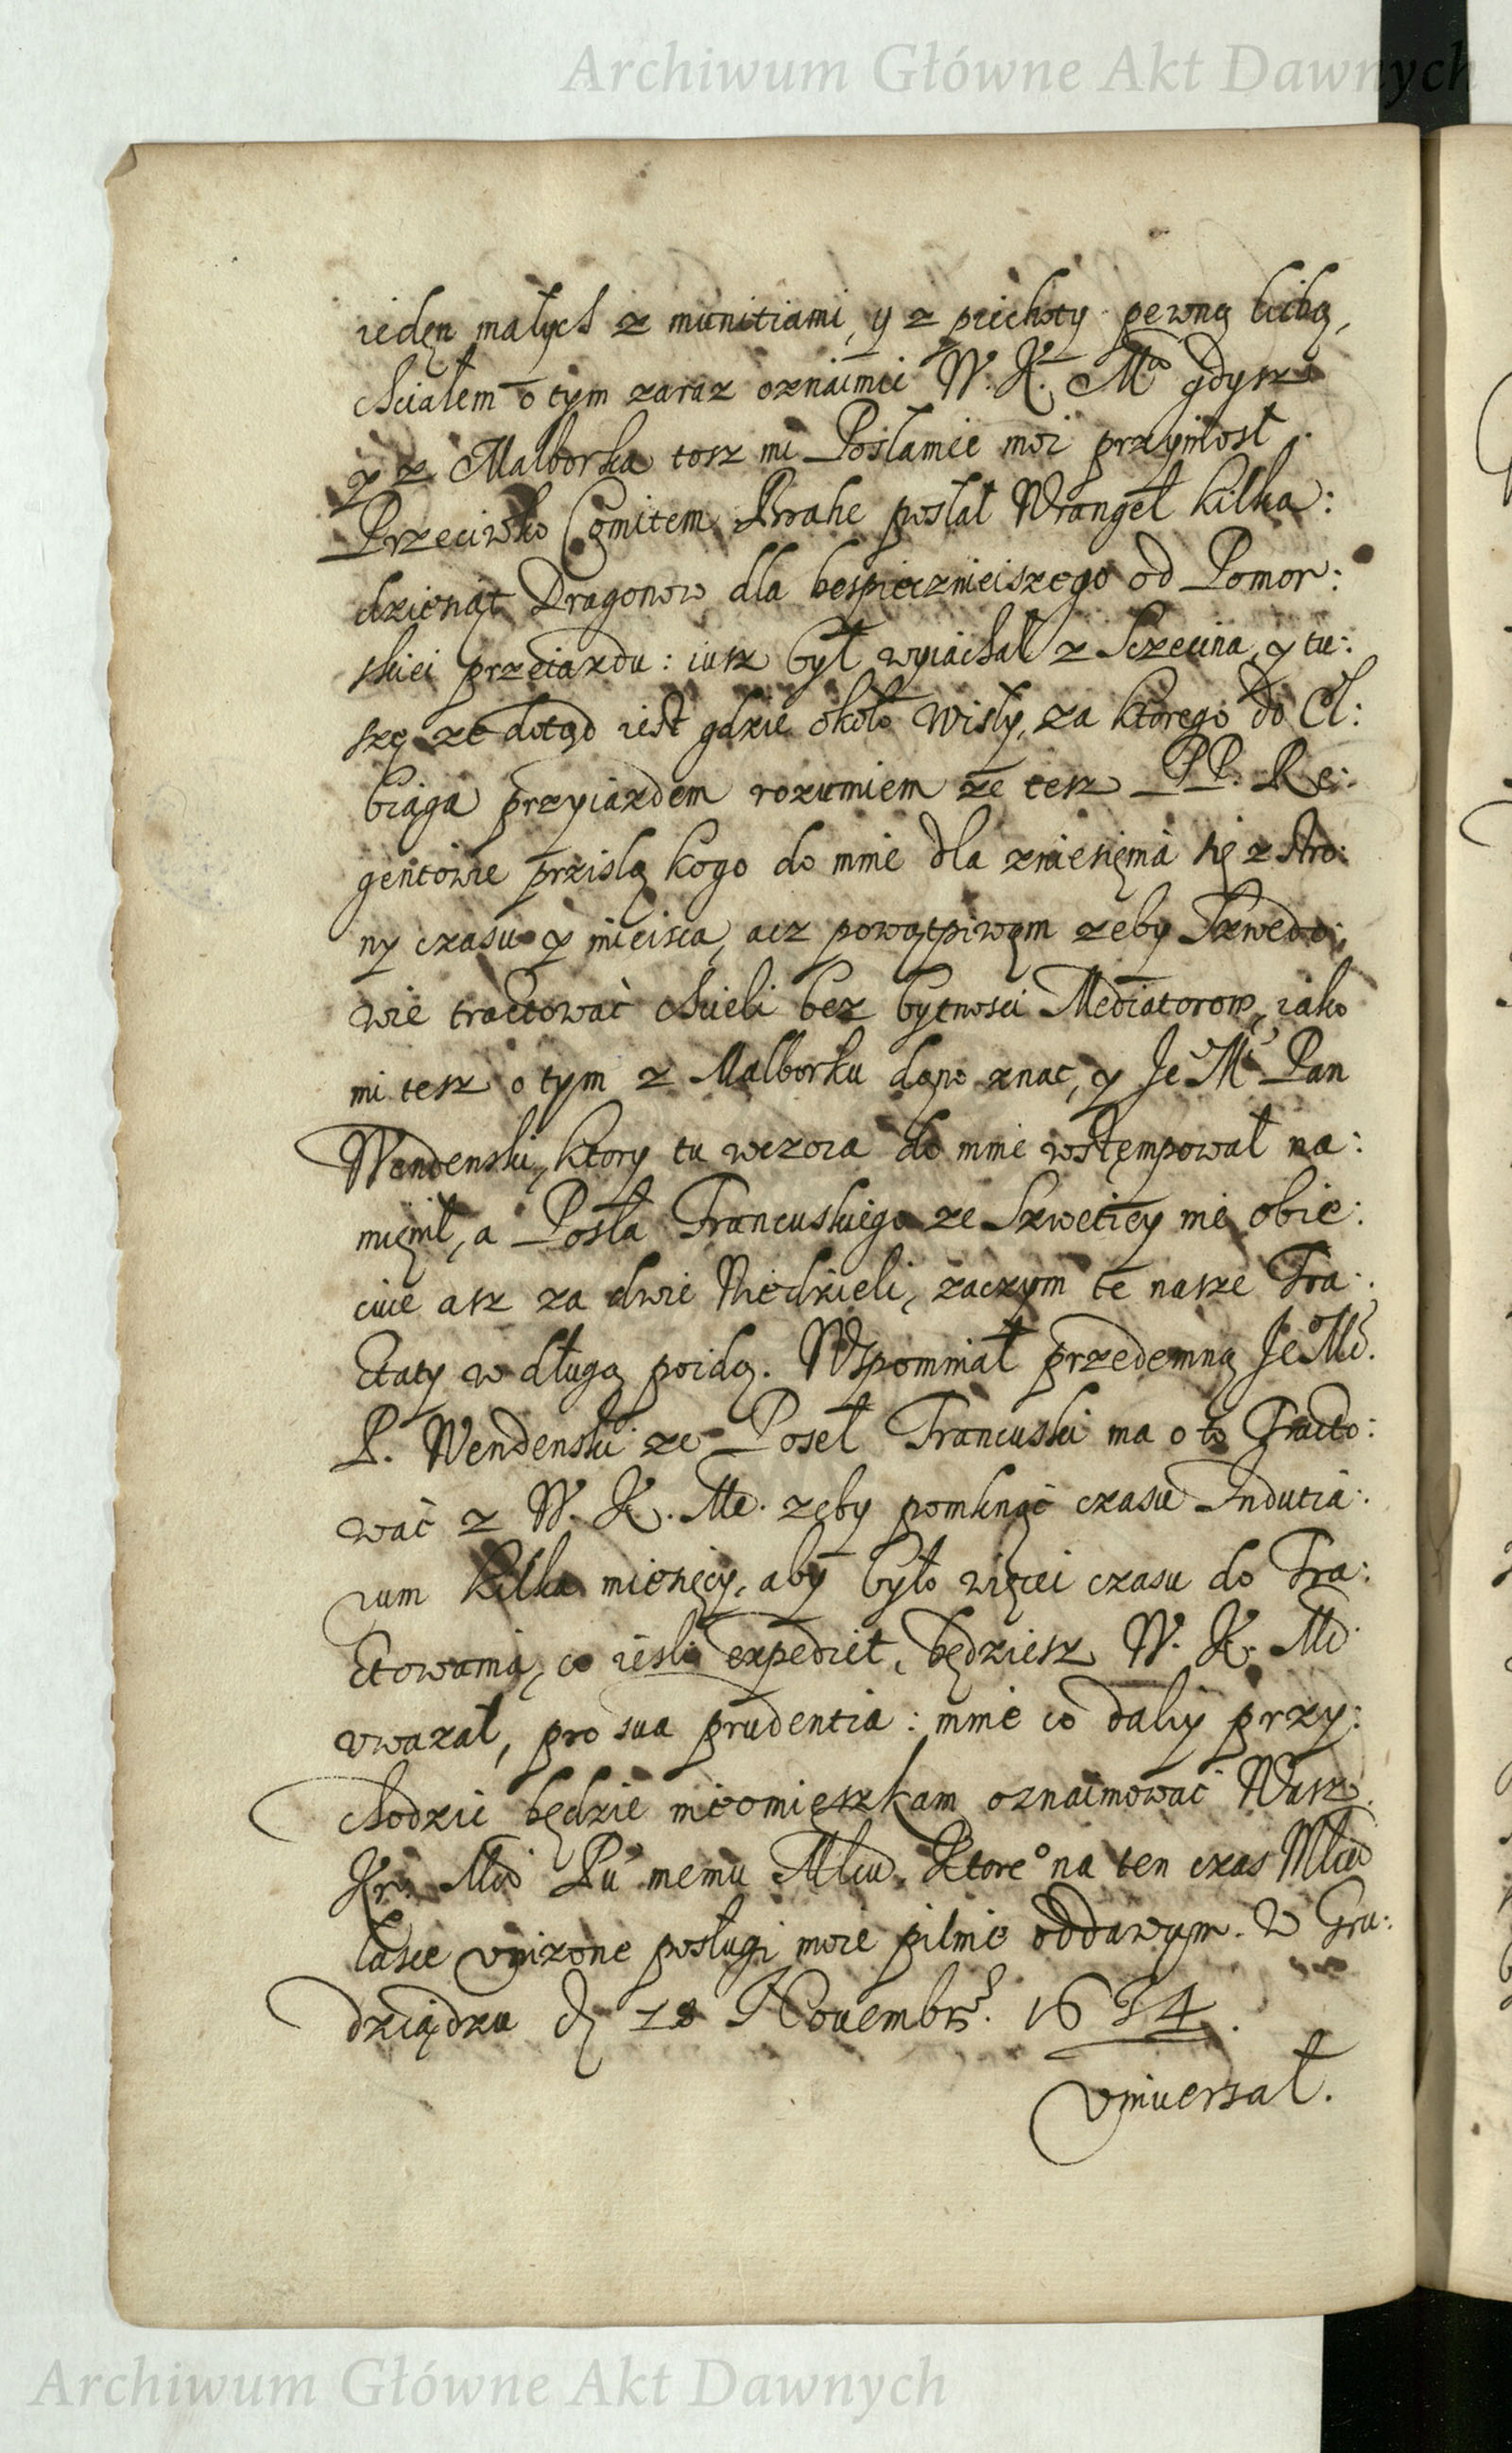 Archiwum Główne Akt Dawnych
ieden małych z munitiami, y z piechoty pewną liczbą,
chciałem o tym zaraz oznaimić W. K. Mci gdysz
y z Malborka tosz mi Posłaniec moi przyniosł.
Przeciwko Comitem Brahe posłał Wrangel kilka:
dziesiąt Dragonow dla bespiecznieiszego od Pomor:
skiei przeiazdu: iusz był wyiachał z Sczecina, y tu:
szę że dotąd iest gdzie około Wisły, za ktorego do El:
biąga przyiazdem rozumiem że tesz PP. Re:
gentowie przislą kogo do mnie dla zniesienia się z stro:
ny czasu y mieisca, acz powątpiwąm żeby Szwedo:
wie tractować chcieli bez bytnosci Mediatorow, iako
mi tesz o tym z Malborku dąno znac, y Je Mć Pan
Wendenski, ktory tu wczora do mnie wstępmpował na:
mięnił, a Posła Francuskiego ze Szweticy nie obie:
cuie asz za dwie Niedzieli, zaczym te nasze Tra:
ctaty w długą poidą. Wspomniał przedemną Je Mć.
P. Wendenski że Poseł Francuski ma o to Tracto:
wać z W. K. Mcią. żeby pomknąć czasu Indutia:
rum kilka miesięcy, aby było więcei czasu do Tra:
ctowania, co iesli expediet, będziesz W. K. Mć
uwazał, pro sua prudentia: mnie co daliy przy:
chodzić będzie nieomięszkam oznaimować Wasz.
Kr. Mci Pu memu Mciu. Ktore° na ten czas Mciw
łasce uniżone posługi moie pilnie oddawąm. W Gru:
dziądzu dn 18 Novembrs. 1634.
Uniuersał.
Archiwum Główne Akt Dawnych